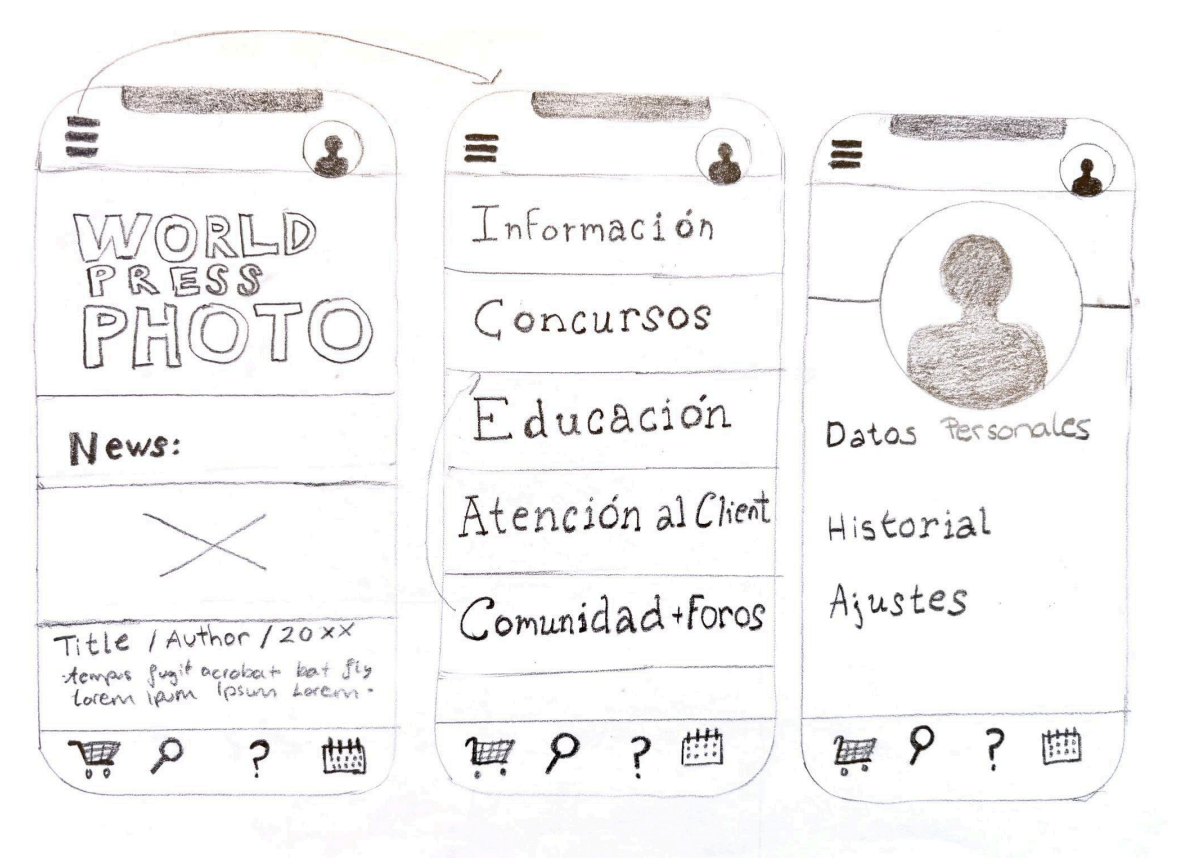 WORLD
PRESS
PHOTO
News:
Title / Author / 20xx
tempus fugit acrobat bat fly
Lorem ipum Ipsum Lorem.
Información
Concursos
Educación
Atención al Client
Comunidad + Foros
Datos Personales
Historial
Ajustes